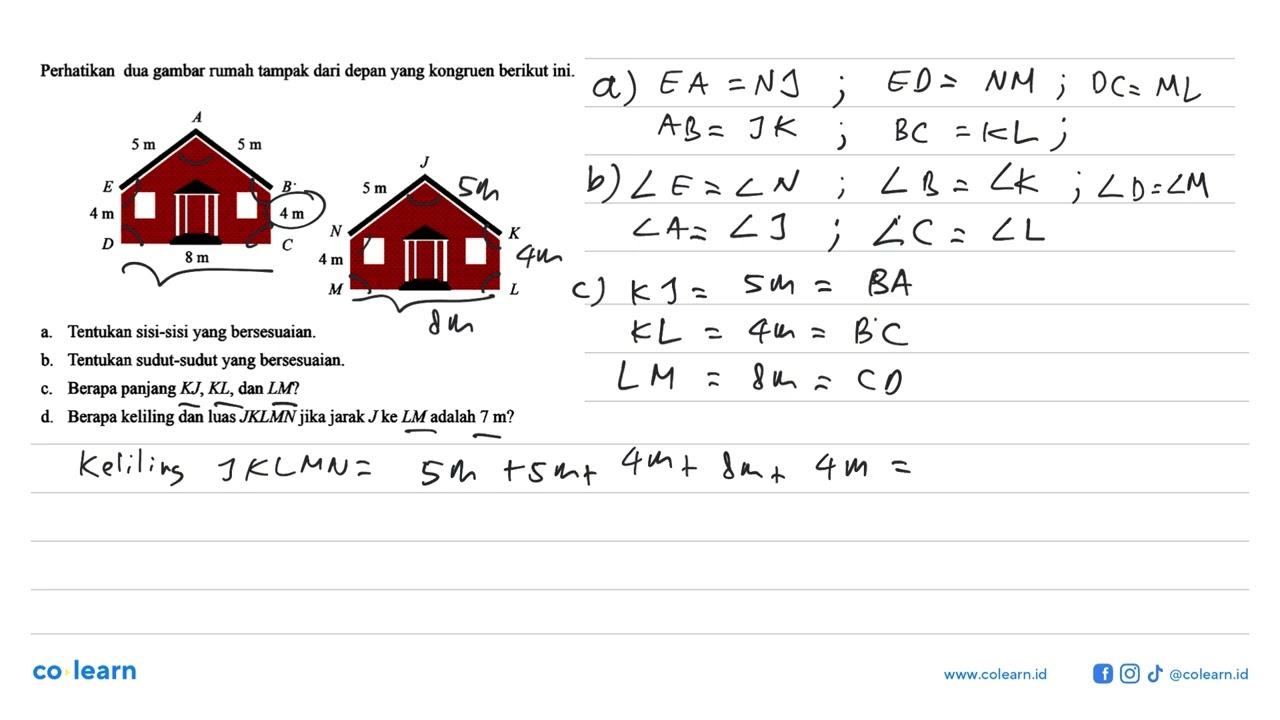 Perhatikan dua gambar rumah tampak dari depan yang kongruen berikut ini.
A
5 m 5 m
E B
4 m 4 m
D C
8 m
J
5 m 5m
N K
4 m 4m
M L
8m
a. Tentukan sisi-sisi yang bersesuaian.
b. Tentukan sudut-sudut yang bersesuaian.
c. Berapa panjang KJ, KL, dan LM?
d. Berapa keliling dan luas JKLMN jika jarak J ke LM adalah 7 m?
a) EA = NJ ; ED = NM ; DC = ML
AB = JK ; BC = KL ;
b) ∠E = ∠N ; ∠B = ∠K ; ∠D = ∠M
∠A = ∠J ; ∠C = ∠L
c) KJ = 5m = BA
KL = 4m = BC
LM = 8m = CD
Keliling JKLMN = 5m + 5m + 4m + 8m + 4m =
co learn
www.colearn.id
@colearn.id